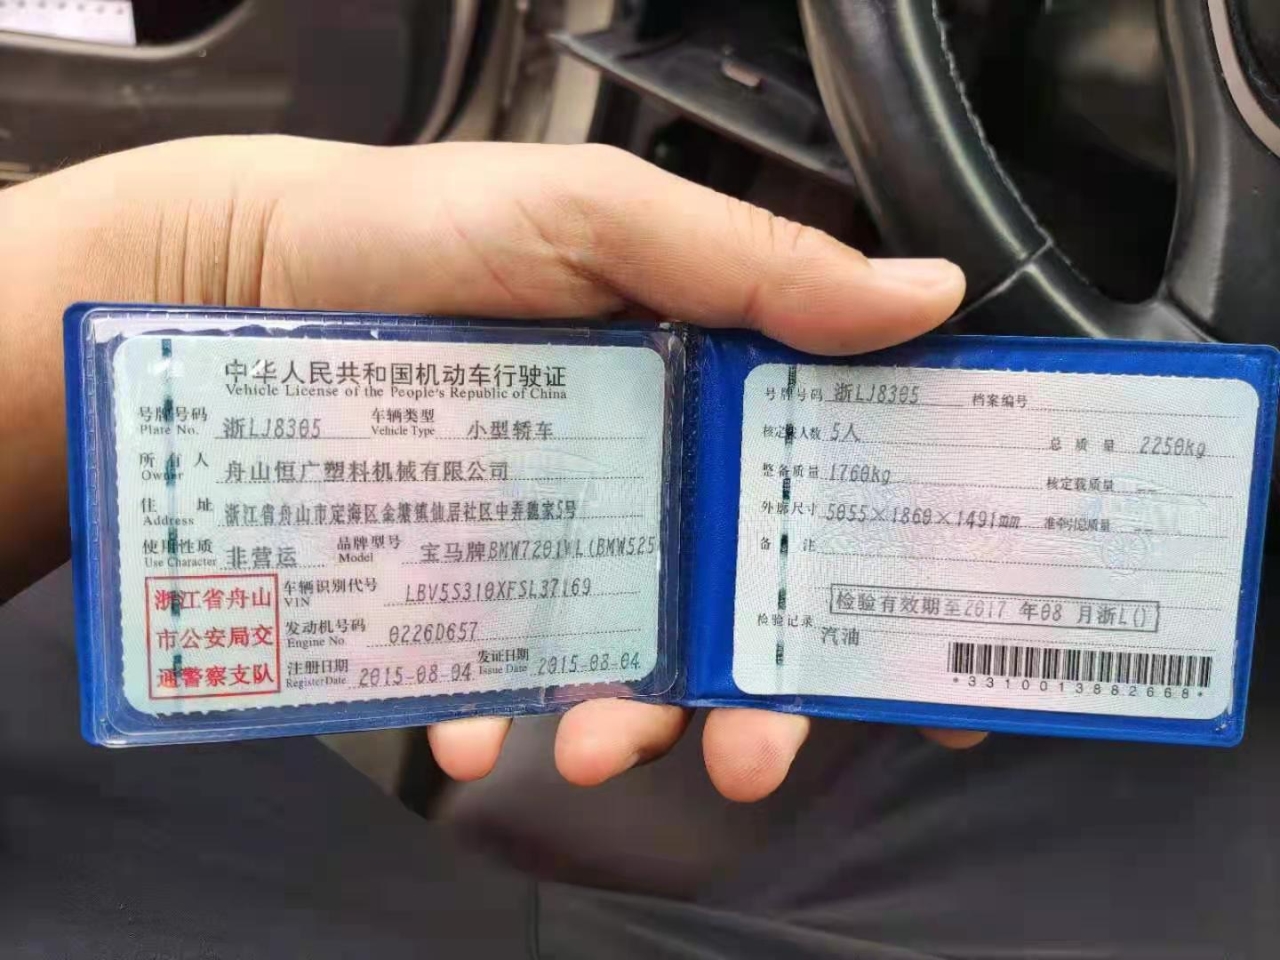 中华人民共和国机动车行驶证
Vehicle License of the People's Republic of China
号牌号码 浙LJ8305 车辆类型 小型轿车
Plate No. Vehicle Type
所有人 舟山恒广塑料机械有限公司
Owner
住址 浙江省舟山市定海区金塘镇仙居社区中弄魏家5号
Address
使用性质 非营运 品牌型号 宝马牌BMW7201WL(BMW525
Use Character Model
浙江省舟山
市公安局交
通警察支队
车辆识别代号 LBV5S310XFSL37169
VIN
发动机号码 0226D657
Engine No.
注册日期 2015-08-04 发证日期 2015-08-04
Register Date Issue Date
号牌号码 浙LJ8305 档案编号
核定载人数 5人 总质量 2250kg
整备质量 1760kg 核定载质量 --
外廓尺寸 5055×1860×1491mm 准牵引总质量 --
备注
检验有效期至2017 年08 月浙L()
检验记录
汽油
*3310013882668*